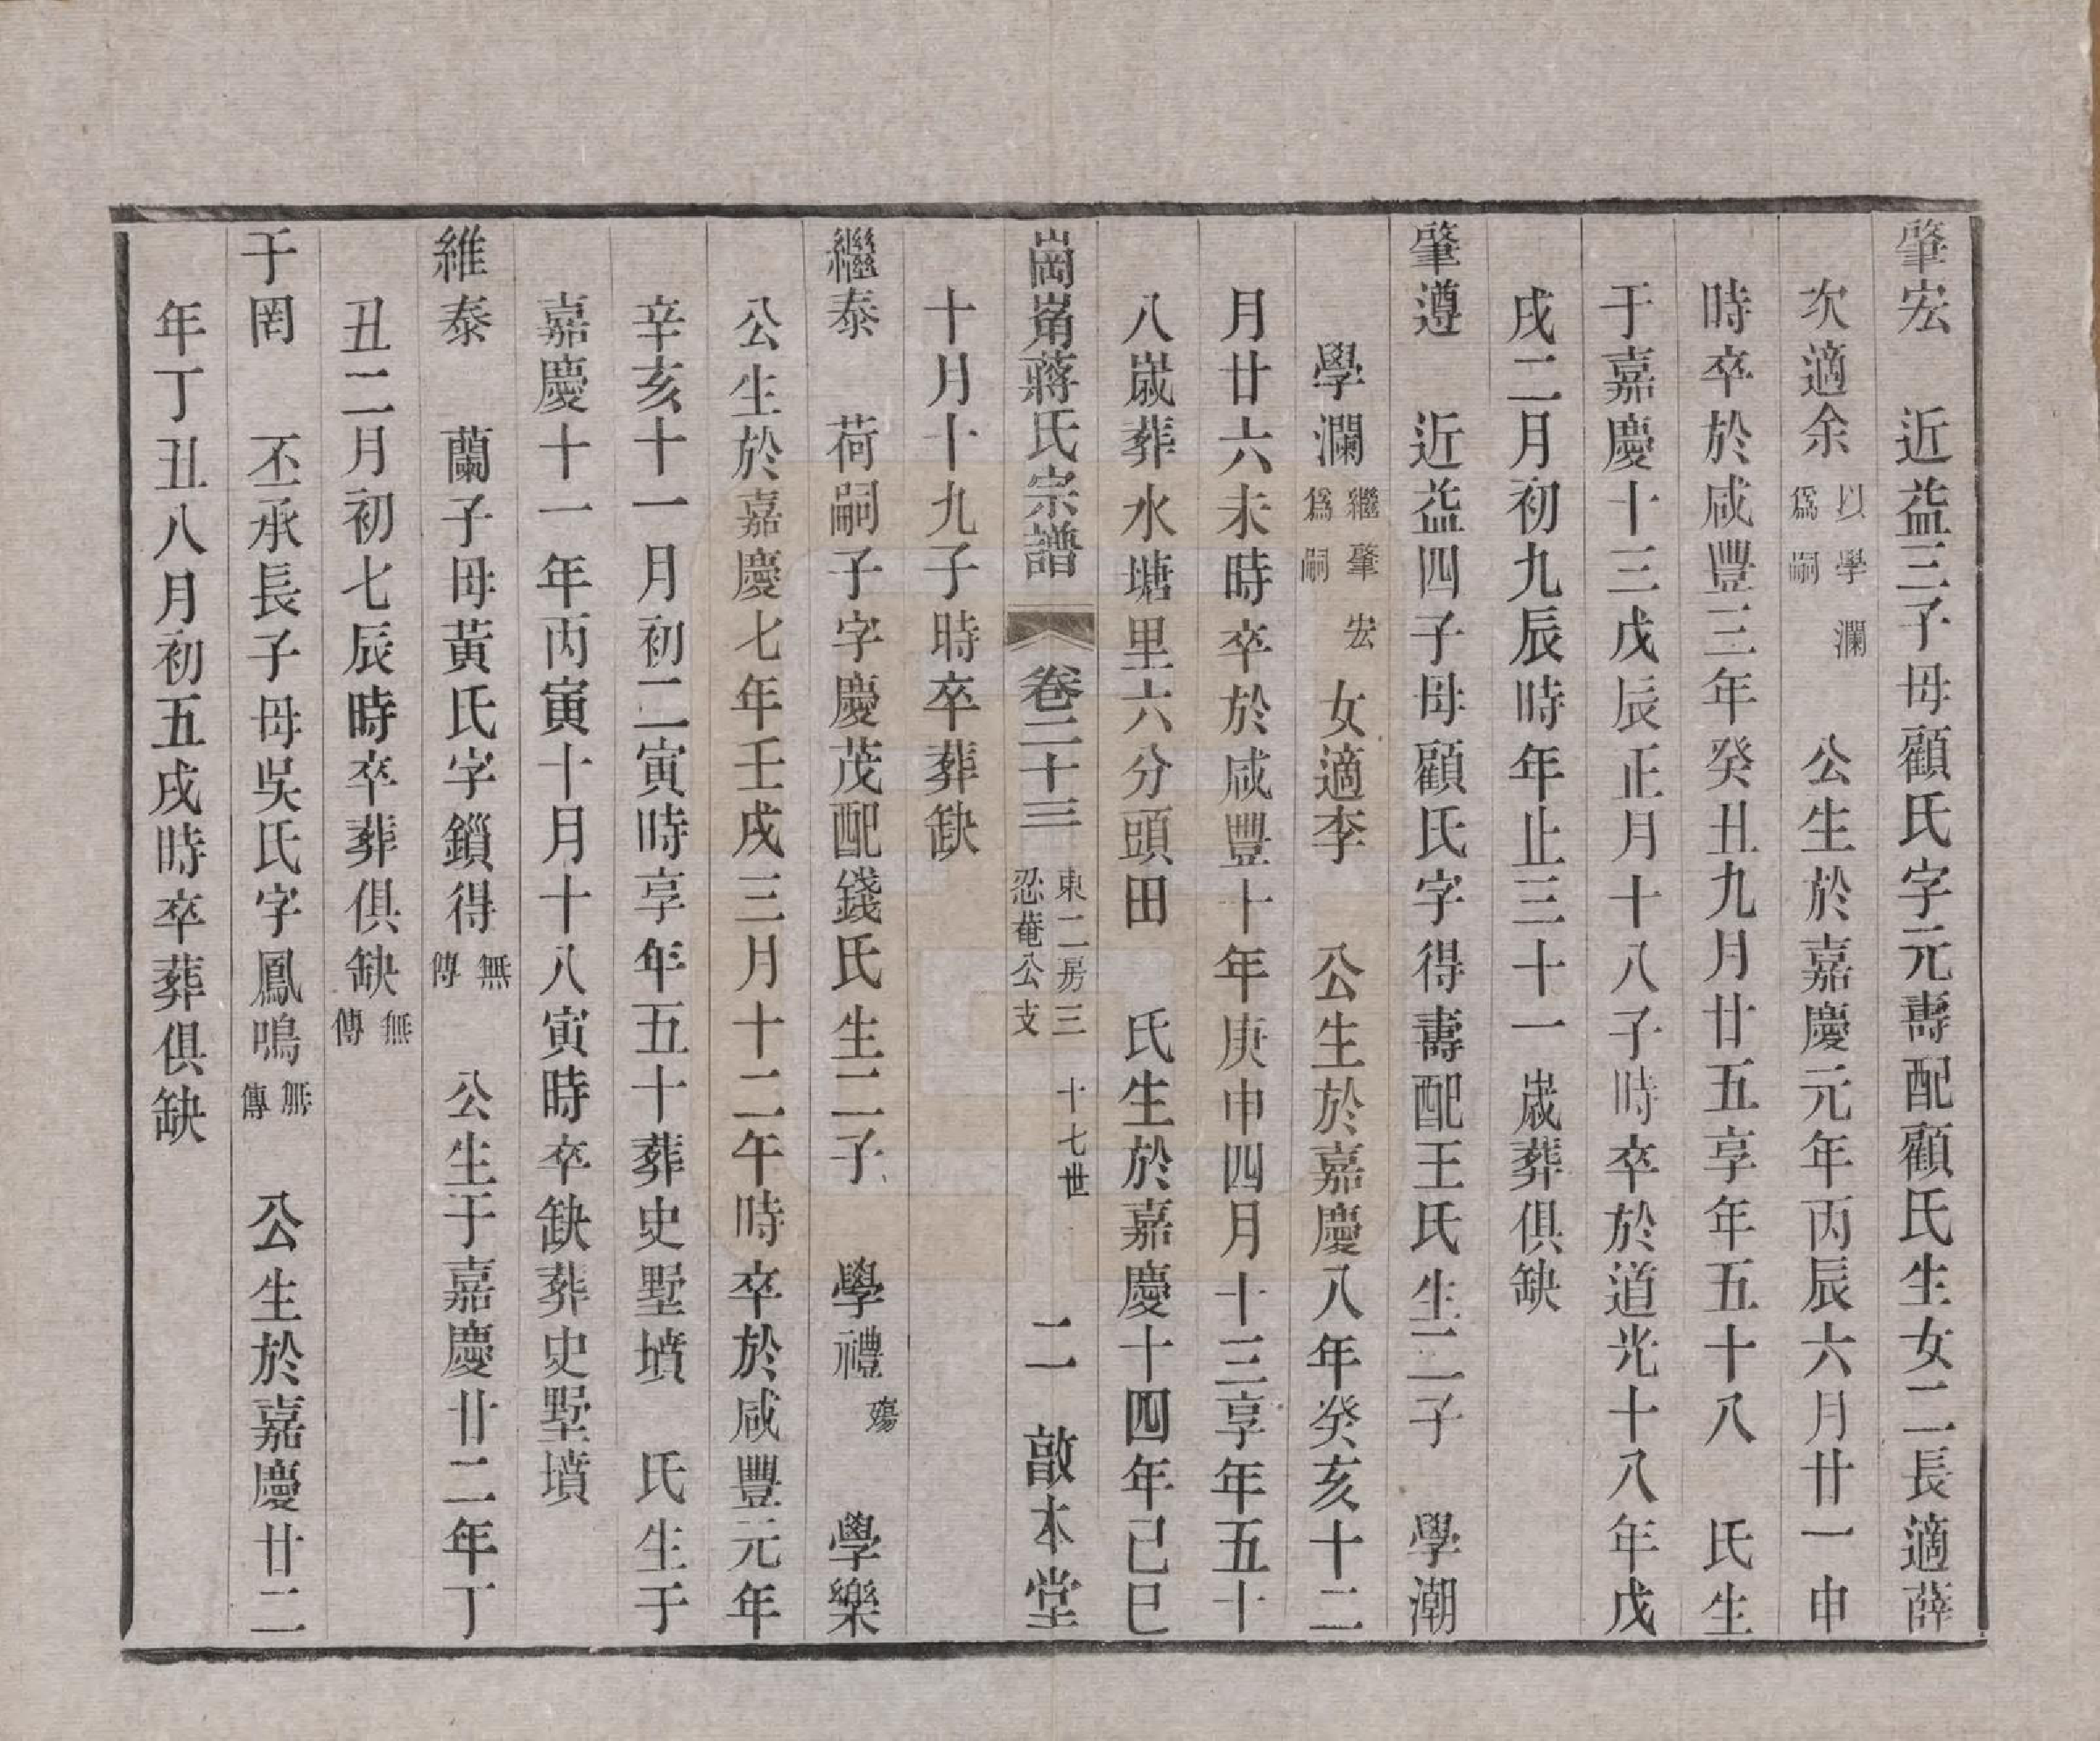 肇宏　近益三子母顧氏字元壽配顧氏生女二長適薛
次適余以學瀾為嗣　公生於嘉慶元年丙辰六月廿一申
時卒於咸豐三年癸丑九月廿五享年五十八　氏生
于嘉慶十三戊辰正月十八子時卒於道光十八年戊
戌二月初九辰時年止三十一歲葬俱缺
肇遵　近益四子母顧氏字得壽配王氏生二子　學潮
學瀾繼肇宏為嗣　女適李　公生於嘉慶八年癸亥十二
月廿六未時卒於咸豐十年庚申四月十三享年五十
八歲葬水塘里六分頭田　氏生於嘉慶十四年己巳
崗崙蔣氏宗譜　卷二十三　東二房三忍菴公支　十七世　二　敦本堂
十月十九子時卒葬缺
繼泰　荷嗣子字慶茂配錢氏生二子　學禮殤　學樂
公生於嘉慶七年壬戌三月十二午時卒於咸豐元年
辛亥十一月初二寅時享年五十葬史墅墳　氏生于
嘉慶十一年丙寅十月十八寅時卒缺葬史墅墳
維泰　蘭子母黃氏字鎖得無傳　公生于嘉慶廿二年丁
丑二月初七辰時卒葬俱缺無傳
于罔　丕承長子母吳氏字鳳鳴無傳　公生於嘉慶廿二
年丁丑八月初五戌時卒葬俱缺